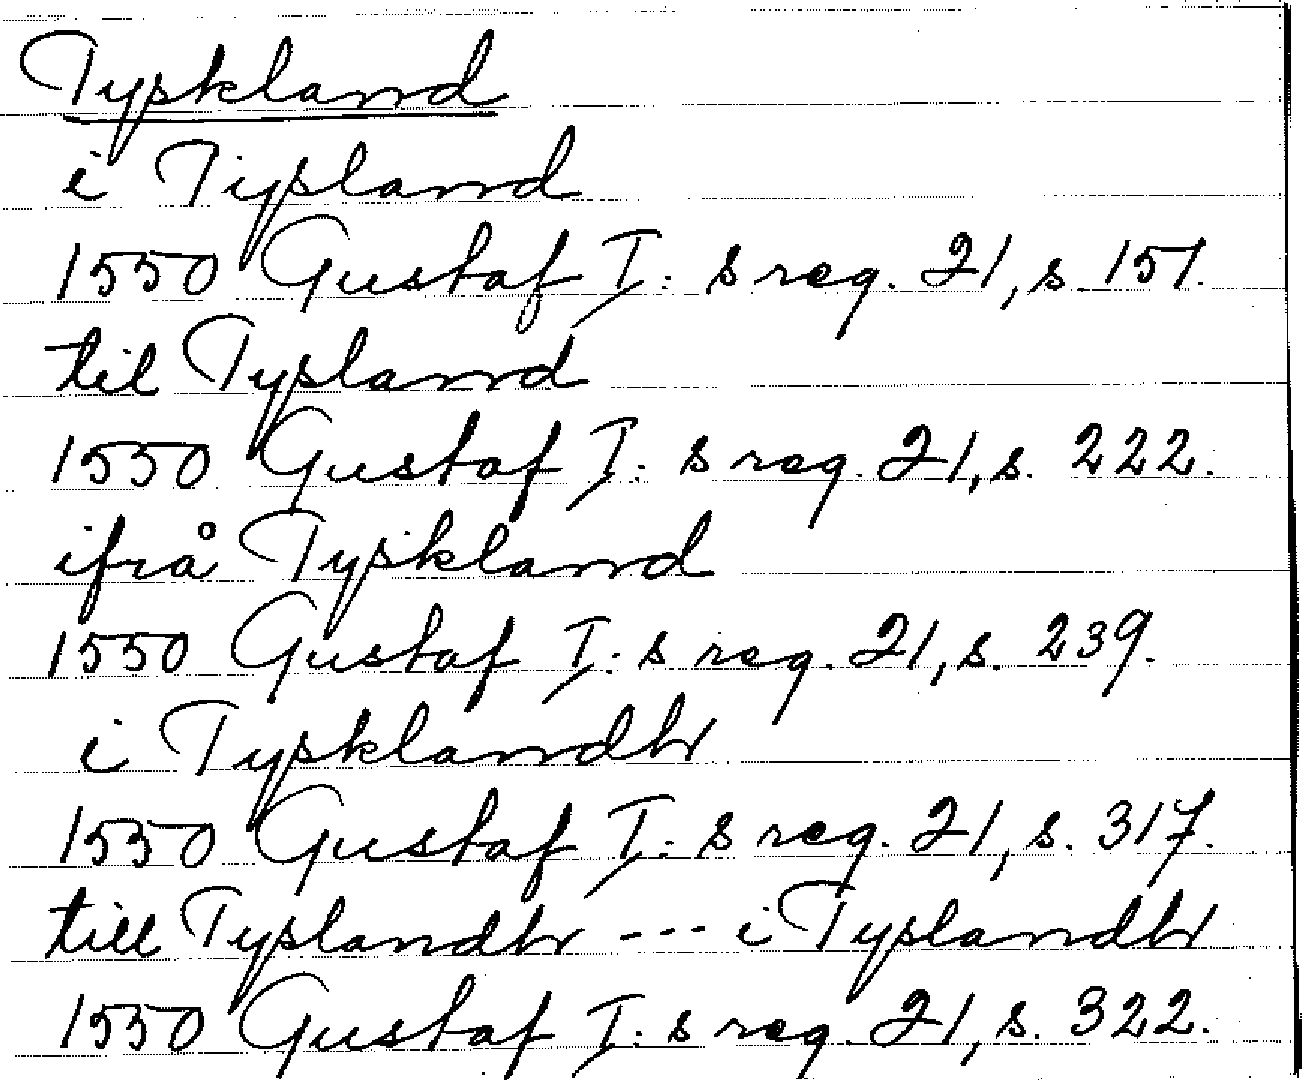 Tyskland
i Tysland
1550 Gustaf I: s reg. 21, s. 151.
til Tysland
1550 Gustaf I: s reg. 21, s. 222.
ifrå Tyskland
1550 Gustaf I: s reg. 21, s. 239.
i Tysklandh
1550 Gustaf I: s reg. 21, s. 317.
till Tyslandh --- i Tyslandh
1550 Gustaf I: s reg. 21, s. 322.